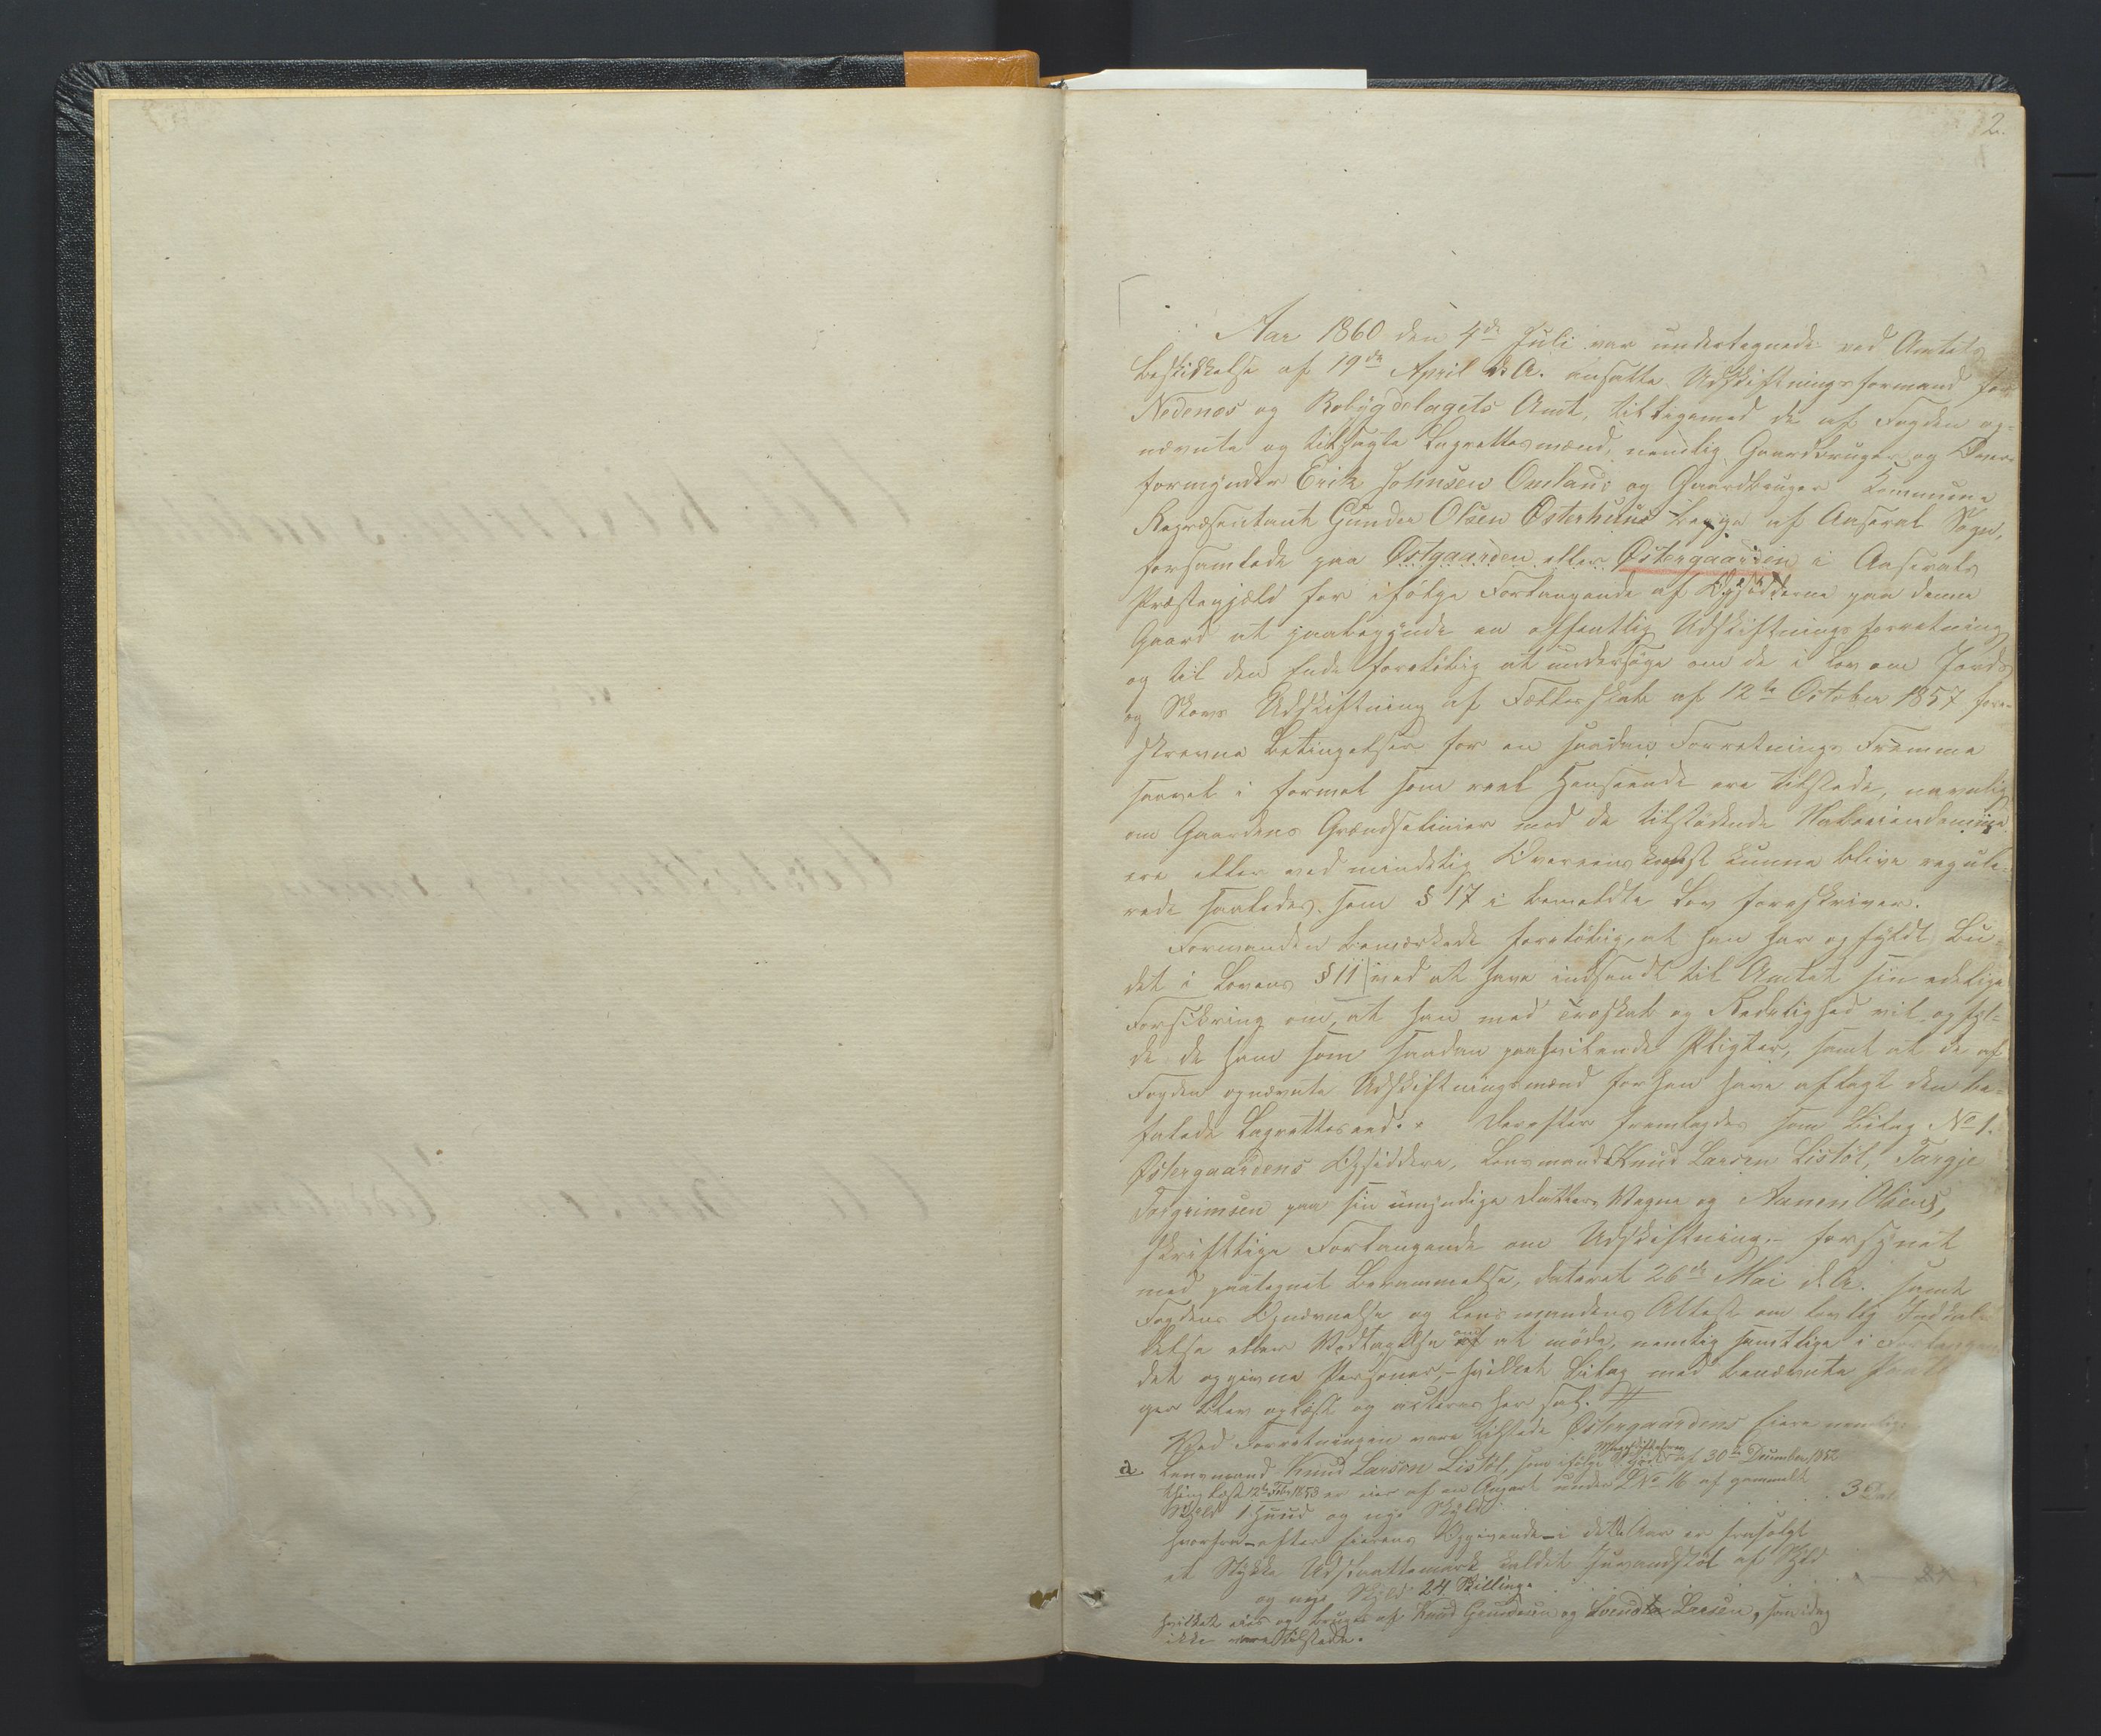 2.
Aar 1860 den 4de Juli var undertegnede ved Amtets
Beskikkelse af 19de April d. A. ansatte Udskiftningsformand for
Nedenæs og Robygdelagets Amt, tilligemed de af Fogden op-
nævnte og tilsagte Lagrettesmænd, nemlig Gaardbruger og Over-
formynder Erik Johnsen Omland og Gaardbruger Kommune
Repræsentant Gunder Olsen Østerhuus begge af Aaseral Sogn,
forsamlede paa Østgaarden eller Østergaarden i Aaserals
Præstegjeld for ifølge Forlangende af Opsidderne paa denne
Gaard at paabegynde en offentlig Udskiftningsforretning
og til den Ende foreløbig at undersøge om de i Lov om Jords
og Skovs Udskiftning af Fællesskab af 12te October 1857 fore-
skrevne Betingelser for en saadan Forretnings Fremme
saavel i formel som reel Henseende ere tilstede, navnlig
om Gaardens Grændselinier med de tilstødende Naboeiendomme
ere eller ved mindelig Overeenskomst kunne blive regule-
rede saaledes som § 17 i bemeldte Lov foreskriver.
Formanden bemærkede foreløbig, at han har opfyldt Bu-
det i Lovens § 11 ved at have indsendt til Amtet sin edelige
Forsikring om, at han med Troskab og Redelighed vil opfyl-
de de ham som saadan paahvilende Pligter, samt at de af
Fogden opnævnte Udskiftningsmænd forhen have aflagt den be-
falede Lagretteseed. Derefter fremlagdes som Bilag No 1.
Østergaardens Opsiddere, Lensmand Knud Larsen Listøl, Targje
Torgrimsen paa sin umyndige Datters Vegne og Aanen Olsens,
skriftlige Forlangende om Udskiftning, forsynet
med paategnet Berammelse, dateret 26de Mai d. A. samt
Fogdens Opnævnelse og Lensmandens Attest om lovlig Indkal-
delse eller Vedtagelse om at møde, nemlig samtlige i Forlangen
det opgivne Personer, hvilket Bilag med benævnte
ger blev oplæst og acteres her sal. #
Ved Forretningen vare tilstede Østergaardens Eiere nemlig:
a. Lensmand Knud Larsen Listøl, som ifølge Mageskiftebrev af 30te December 1852
thinglæst 12te Feb 1853 er eier af en Anpart under L No 16 af gammel
Skyld 1 Huud og nye Skyld . . . . 3 Dal
hvorfra efter Eierens Opgivende i dette Aar er frasolgt
et Stykke Udslaattemark kaldet af Skyld
og nye Skyld 24 Skilling.
hvilket eies og bruges af Knud Gundersen og Larsen, som idag
ikke vare tilstede.